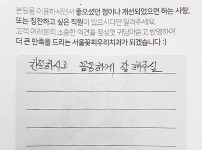 본원을 이용하시면서 좋으셨던 점이나 개선되었으면 하는 사항,
또는 칭찬하고 싶은 직원이 있으시다면 알려주세요.
고객 여러분의 소중한 의견을 정성껏 귀담아듣고 반영하여
더 큰 만족을 드리는 서울꽃피우리치과가 되겠습니다 :)
친절하시고 꼼꼼하게 잘 해주심